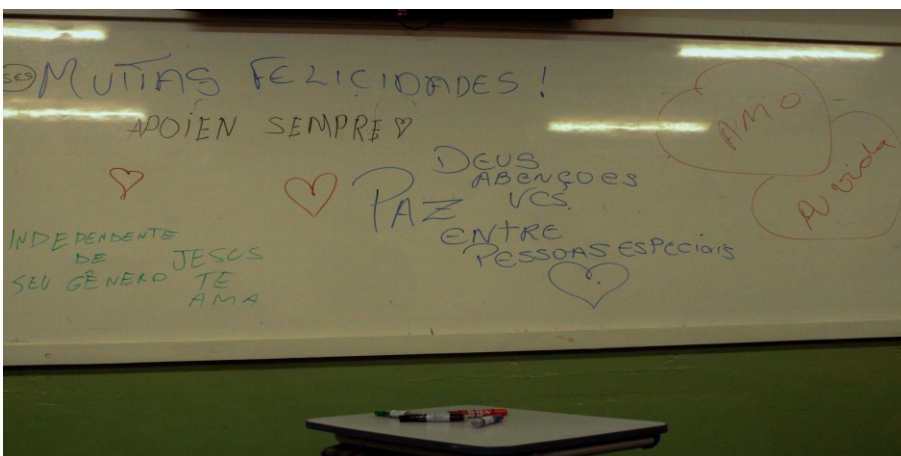 MUTIAS FELICIDADES!
APOIEN SEMPRE
DEUS
ABENÇOES
VCS.
PAZ
ENTRE
PESSOAS ESPECIAIS
INDEPENDENTE
DE
SEU GÊNERO
JESUS
TE
AMA
AMO
A vida